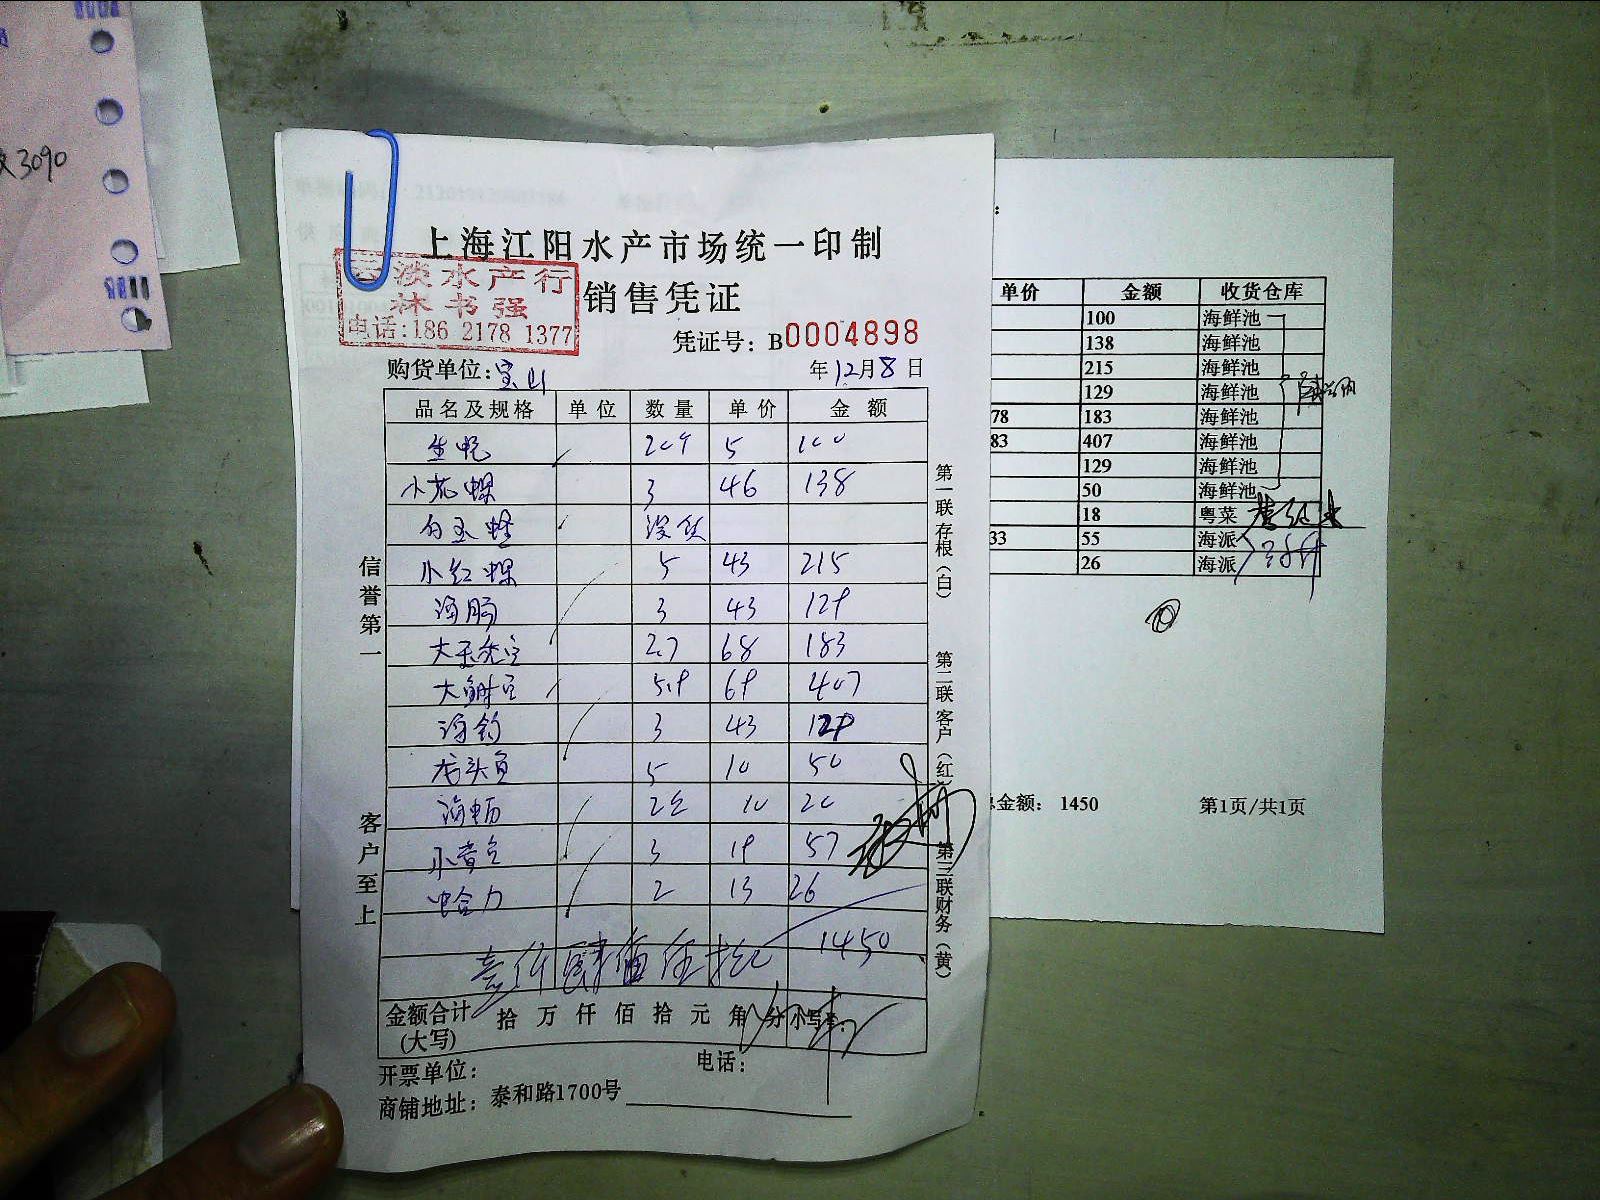 3090
上海江阳水产市场统一印制
销售凭证
淡水产行
林书强
电话:186 2178 1377
凭证号: B0004898
购货单位:宝山
年12月8日
品名及规格 单位 数量 单价 金额
生蚝 20个 5 100
小花螺 3 46 138
白玉蛏 没货
小红螺 5 43 215
海肠 3 43 129
2.7 68 183
5.9 69 407
3 43 129
5 10 50
2 10 20
3 19 57
蛤力 2 13 26
壹仟肆佰伍拾元 1450
金额合计(大写) 拾 万 仟 佰 拾 元 角 分 小写¥:
开票单位: 电话:
商铺地址: 泰和路1700号
信誉第一
客户至上
第一联存根(白)
第二联客户(红)
第三联财务(黄)
单价 金额 收货仓库
100 海鲜池
138 海鲜池
215 海鲜池
129 海鲜池
78 183 海鲜池
83 407 海鲜池
129 海鲜池
50 海鲜池
18 粤菜
33 55 海派
26 海派
金额: 1450 第1页/共1页